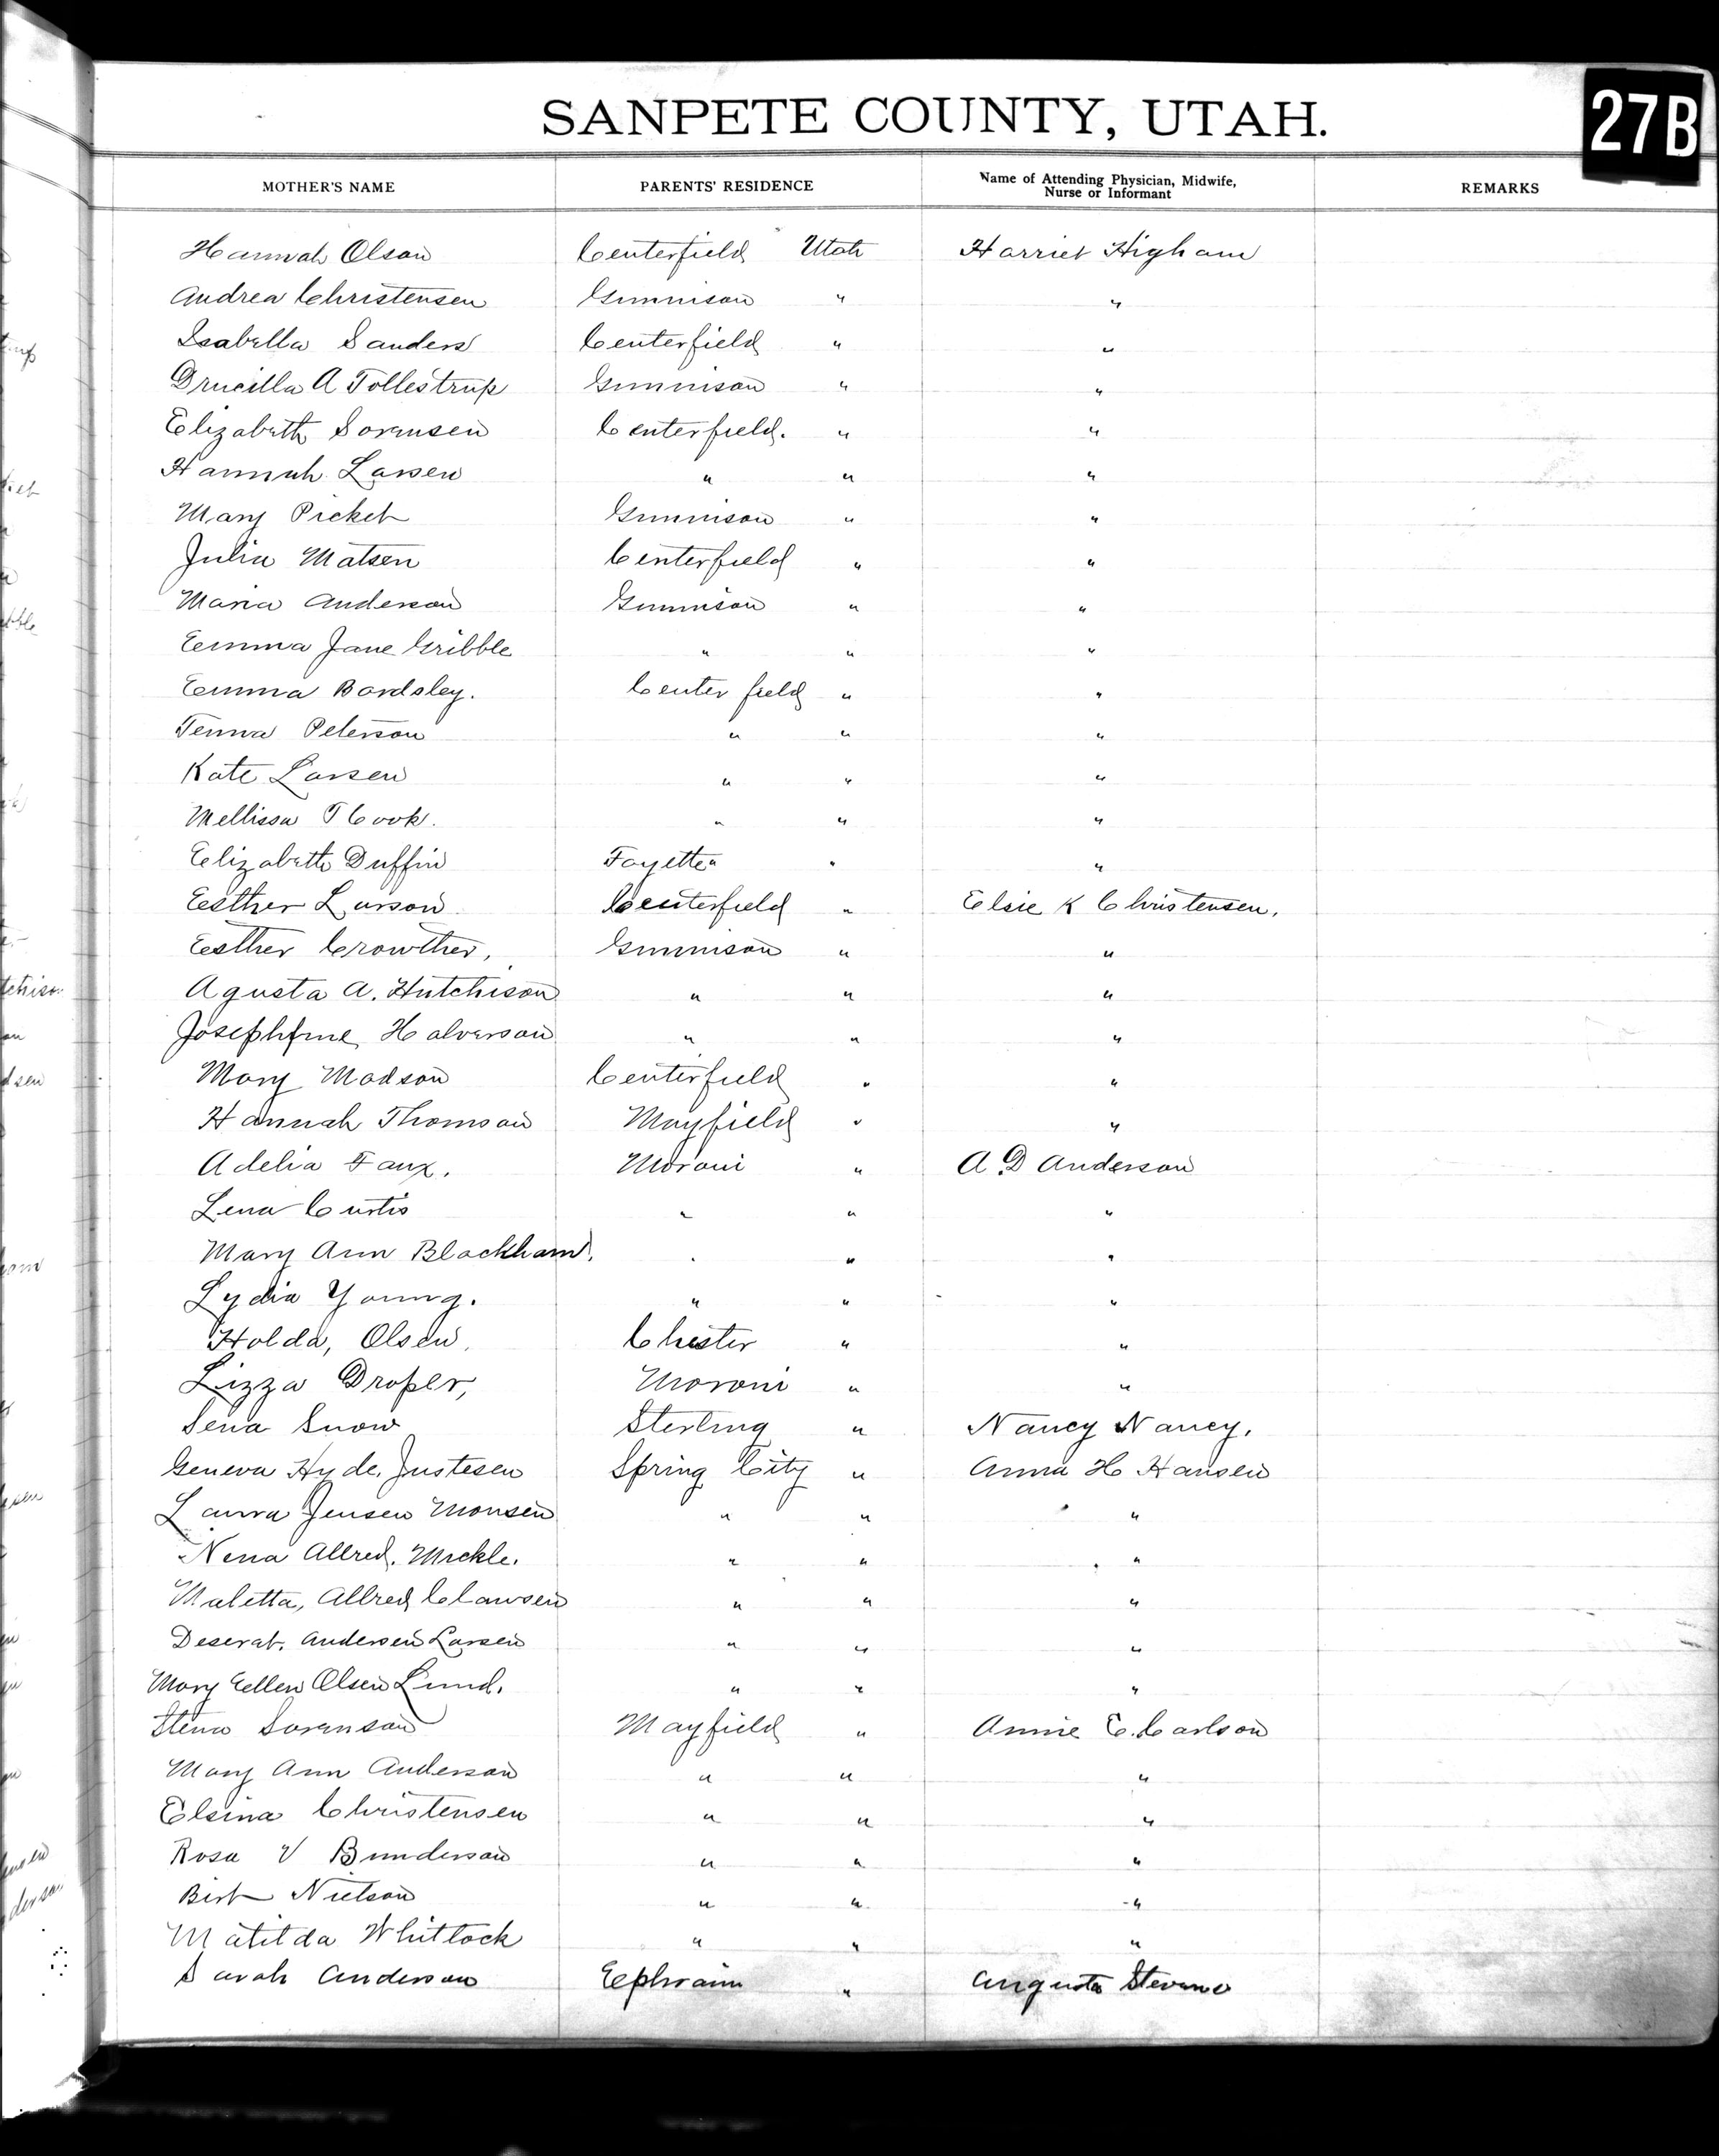 SANPETE COUNTY, UTAH.
27B
MOTHER'S NAME PARENTS' RESIDENCE Name of Attending Physician, Midwife, Nurse or Informant REMARKS
Hannah Olson Centerfield Utah Harriet Higham
Andrea Christensen Gunnison " "
Isabella Sanders Centerfield " "
Drucilla A Tollestrup Gunnison " "
Elizabeth Sorensen Centerfield. " "
Hannah Larsen " " "
Mary Picket Gunnison " "
Julia Matsen Centerfield " "
Maria Anderson Gunnison " "
Emma Jane Gribble " " "
Emma Bardsley. Center field " "
Tenna Peterson " " "
Kate Larsen " " "
Mellissa T Cook. " " "
Elizabeth Duffin Fayette " " "
Esther Larson Centerfield " Elsie K Christensen.
Esther Crowther, Gunnison " "
Agusta A. Hutchison " " "
Josephine Halverson " " "
Mary Madson Centerfield " "
Hannah Thomson Mayfield " "
Adelia Faux. Moroni " A D Anderson
Lena Curtis " " "
Mary Ann Blackham. " " "
Lydia Young. " " "
Holda, Olsen. Chester " "
Lizza Draper, Moroni " "
Sena Snow Sterling " Nancy Nancy.
Geneva Hyde, Justesen Spring City " Anna H Hansen
Laura Jensen Monsen " " "
Nena Allred, Mickle. " " "
Maletta, Allred Clawsen " " "
Deserat. Andersen Larsen " " "
Mary Ellen Olsen Lund. " " "
Stena Sorenson Mayfield " Annie E. Carlson
Mary Ann Anderson " " "
Elsina Christensen " " "
Rosa V Bunderson " " "
Birt Nielson " " "
Matilda Whitlock " " "
Sarah Anderson Ephraim " Augusta Stevens